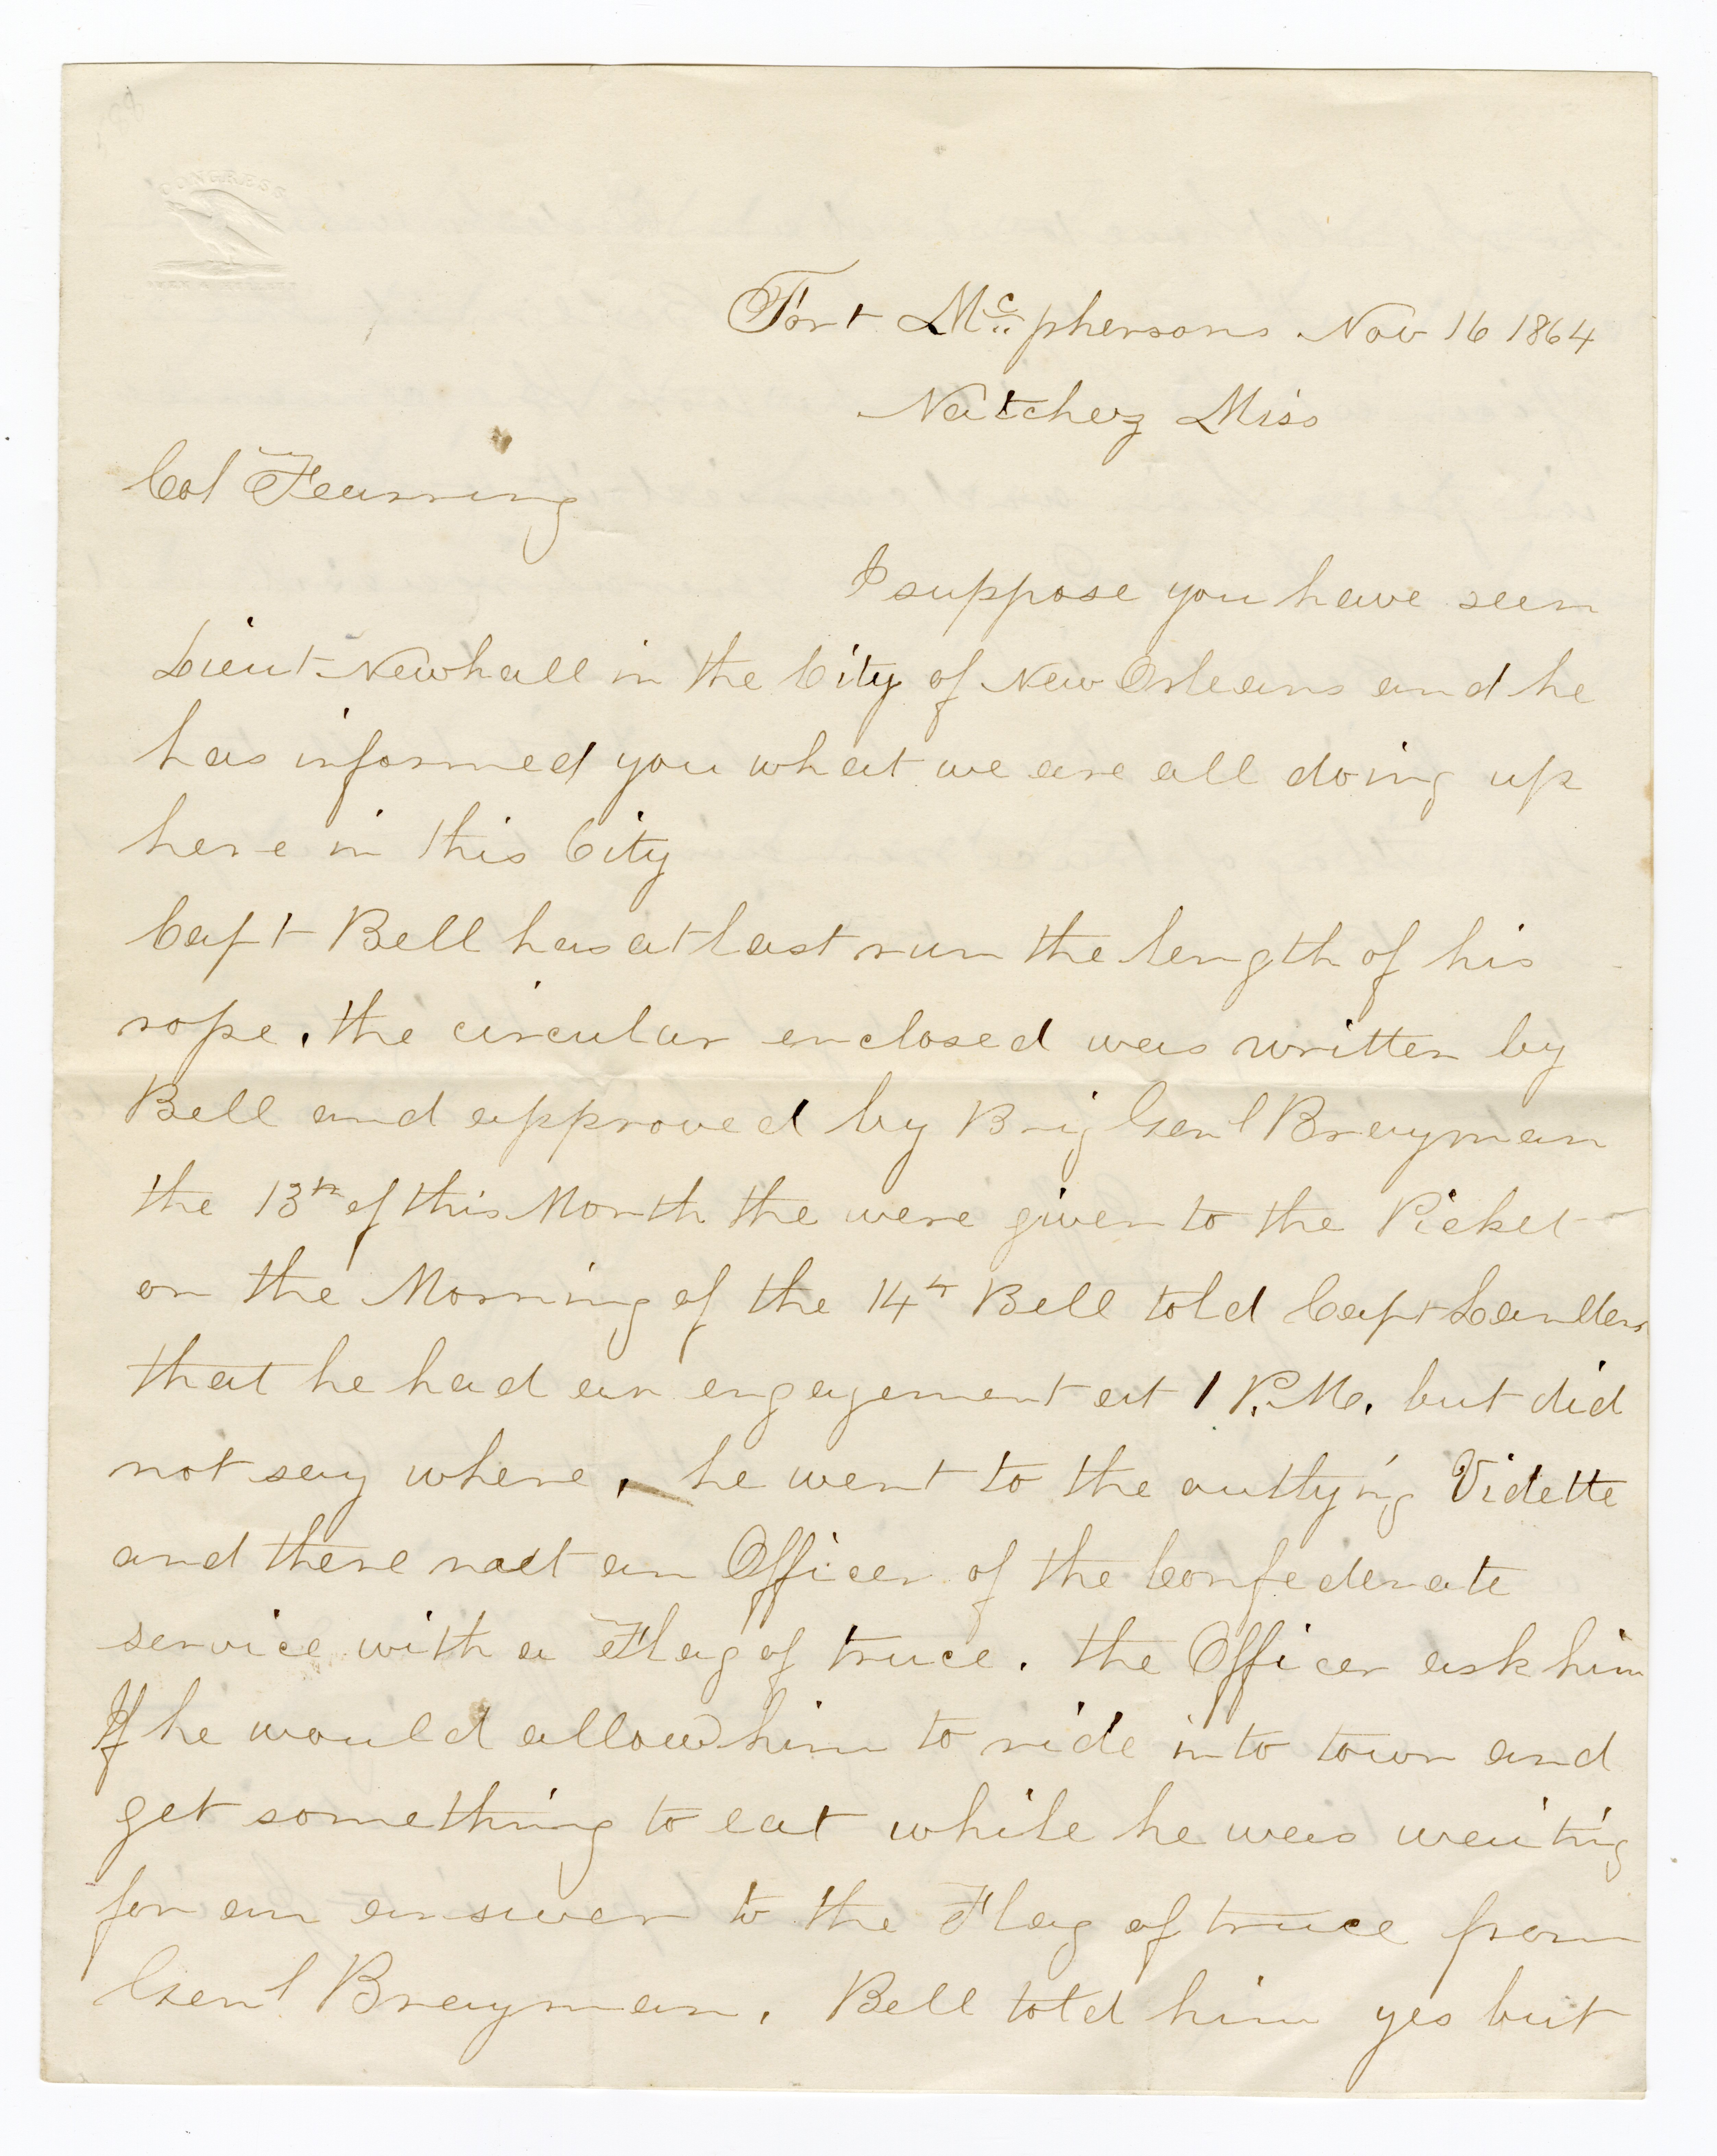 CONGRESS
Fort McPhersons Nov 16 1864
Natchez Miss
Col Fearning
I suppose you have seen
Lieut Newhall in the City of New Orleans and he
has informed you what we are all doing up
here in this City
Capt Bell has at last run the length of his
rope. the circular enclosed was written by
Bell and approved by Brig Genl Brayman
the 13th of this Month the were given to the Picket
on the Morning of the 14th Bell told Capt
that he had an engagement at 1 P.M. but did
not say where, he went to the outlying Vidette
and there met an Officer of the Confederate
service with a Flag of truce. the Officer ask him
If he would allow him to ride into town and
get something to eat while he was waiting
for an answer to the Flag of truce from
Genl Brayman. Bell told him yes but